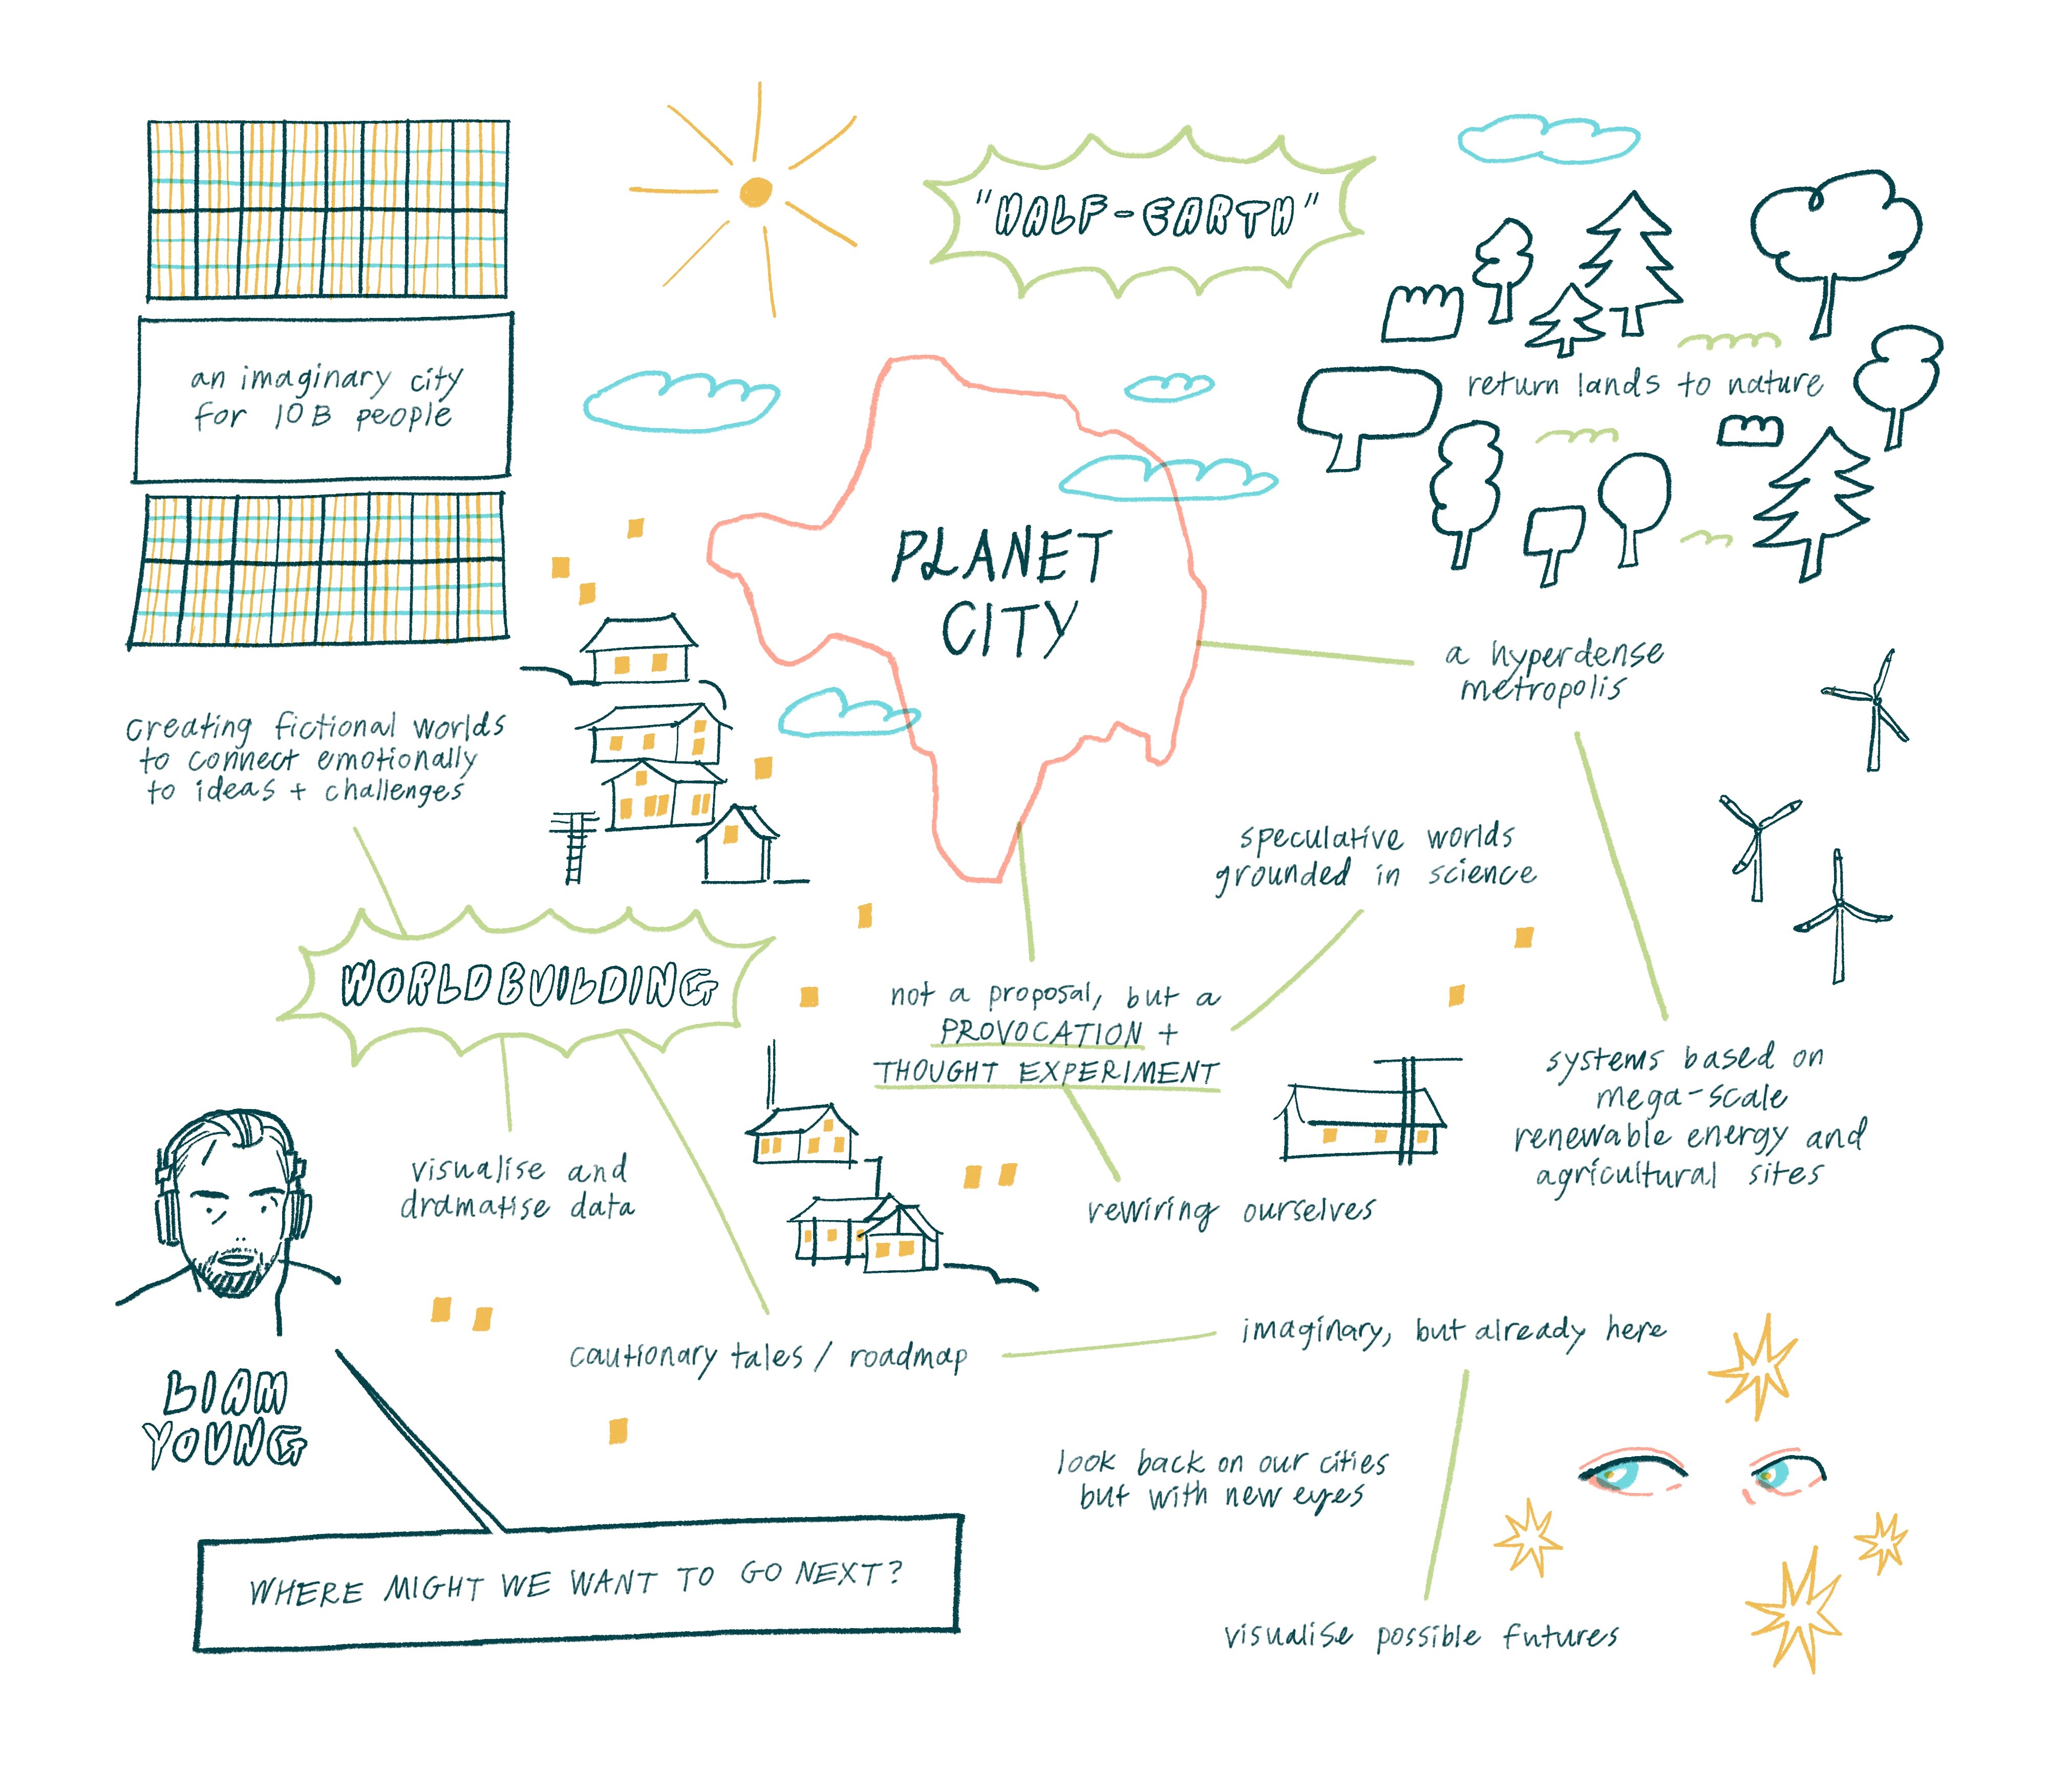 "HALF-EARTH"
an imaginary city
for 10B people
return lands to nature
PLANET
CITY
a hyperdense
metropolis
creating fictional worlds
to connect emotionally
to ideas + challenges
speculative worlds
grounded in science
WORLDBUILDING
not a proposal, but a
PROVOCATION +
THOUGHT EXPERIMENT
systems based on
mega-scale
renewable energy and
agricultural sites
visualise and
dramatise data
rewiring ourselves
cautionary tales / roadmap
imaginary, but already here
LIAM
YOUNG
look back on our cities
but with new eyes
WHERE MIGHT WE WANT TO GO NEXT?
visualise possible futures